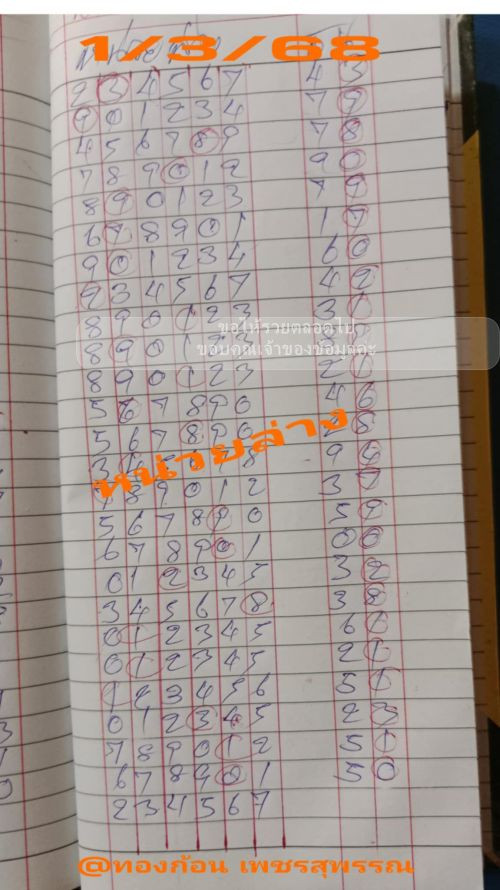 1/3/68
2 3 4 5 6 7 4 3
9 0 1 2 3 4 7 9
4 5 6 7 8 9 7 8
7 8 9 0 1 2 9 0
8 9 0 1 2 3 7 9
6 7 8 9 0 1 1 7
9 0 1 2 3 4 6 0
2 3 4 5 6 7 4 2
8 9 0 1 2 3 3 1
ขอให้รวยตลอดไป
8 9 0 1 2 3
ขอบคุณเจ้าของข้อมูลค่ะ
8 9 0 1 2 3 2 1
5 6 7 8 9 0 4 6
5 6 7 8 9 0 2 8
หน่วยล่าง
7 8 9 0 1 2 3 7
5 6 7 8 9 0 5 9
6 7 8 9 0 1 0 0
0 1 2 3 4 5 3 2
3 4 5 6 7 8 3 8
0 1 2 3 4 5 6 1
0 1 2 3 4 5 2 1
1 2 3 4 5 6 5 1
0 1 2 3 4 5 2 3
7 8 9 0 1 2 5 1
6 7 8 9 0 1 5 0
2 3 4 5 6 7
@ทองก้อน เพชรสุพรรณ